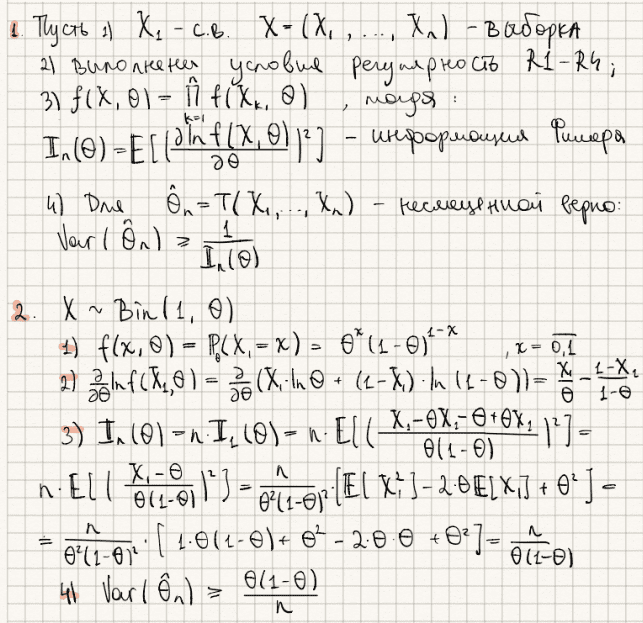 1. Пусть 1) X₁ - с.в. X = (X₁, ..., Xₙ) - выборка
2) выполнены условия регулярность R1-R4;
3) f(X, θ) = ∏ₖ₌₁ⁿ f(Xₖ, θ), тогда:
𝕀ₙ(θ) = E[(∂ln f(X, θ)/∂θ)²] - информация Фишера
4) Для θ̂ₙ = T(X₁, ..., Xₙ) - несмещенной верно:
Var(θ̂ₙ) ≥ 1/𝕀ₙ(θ)
2. X ~ Bin(1, θ)
1) f(x, θ) = ℙ_θ(X₁ = x) = θˣ(1-θ)¹⁻ˣ, x = 0,1
2) ∂/∂θ ln f(X₁, θ) = ∂/∂θ (X₁·ln θ + (1-X₁)·ln(1-θ)) = X₁/θ - (1-X₁)/(1-θ)
3) 𝕀ₙ(θ) = n·𝕀₁(θ) = n·E[((X₁-θX₁-θ+θX₁)/(θ(1-θ)))²] =
n·E[((X₁-θ)/(θ(1-θ)))²] = n/(θ²(1-θ)²)·[E[X₁²] - 2·θE[X₁] + θ²] =
= n/(θ²(1-θ)²)·[1·θ(1-θ) + θ² - 2·θ·θ + θ²] = n/(θ(1-θ))
4) Var(θ̂ₙ) ≥ θ(1-θ)/n